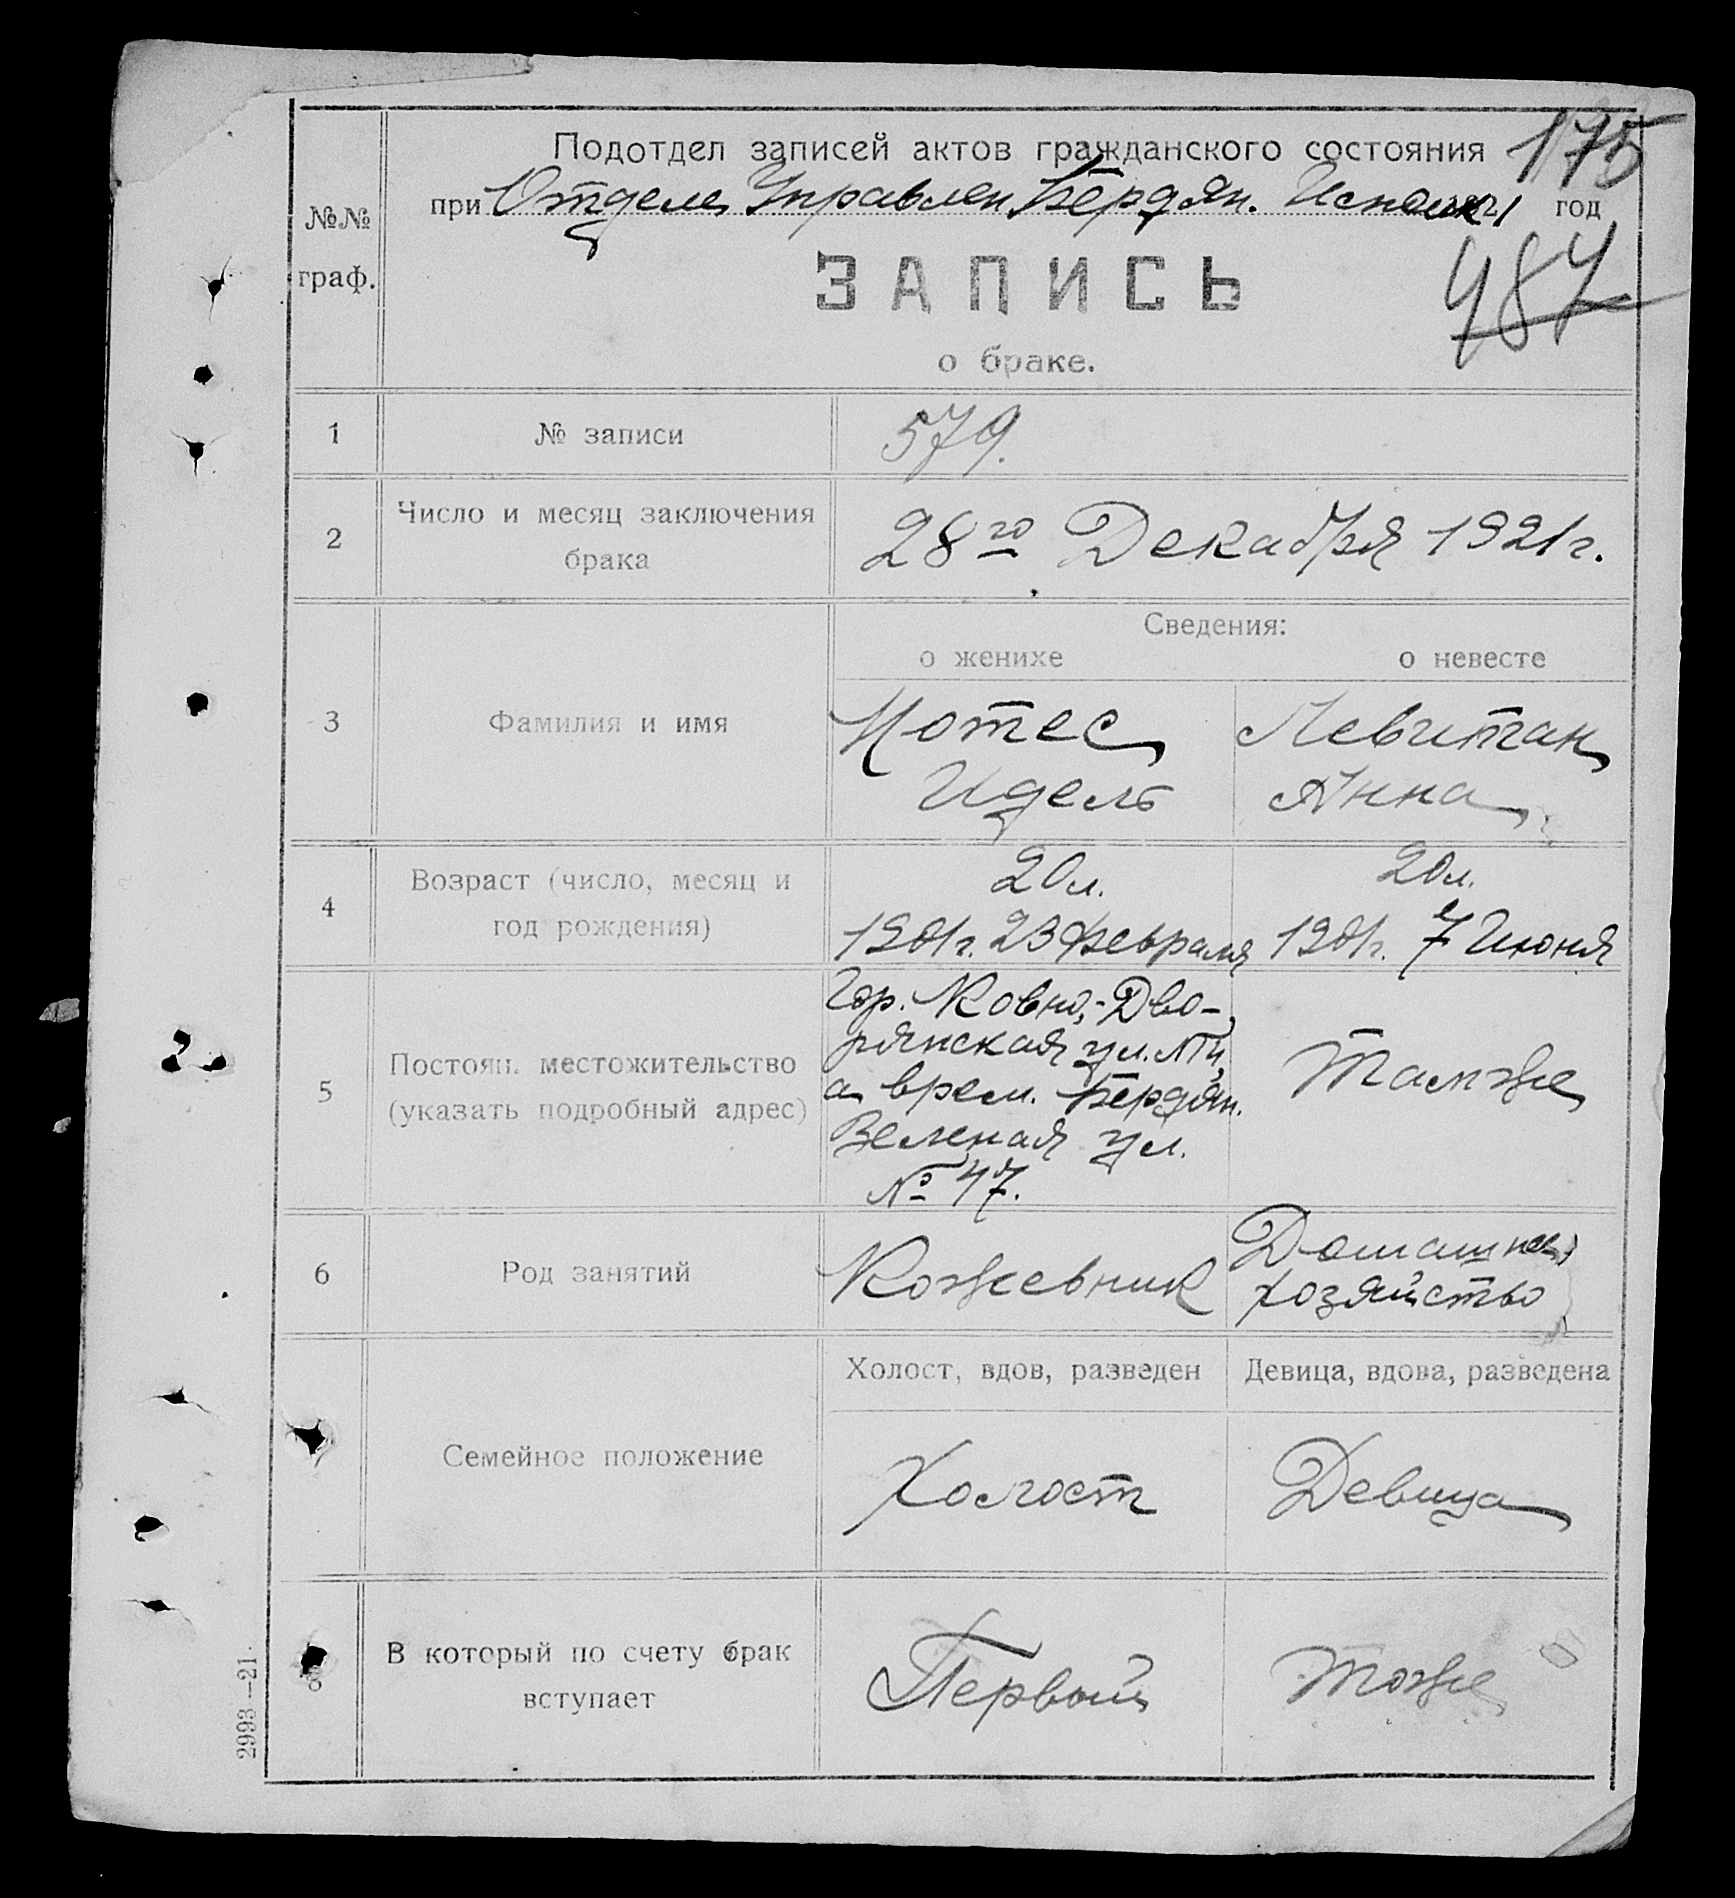 Подотдел записей актов гражданского состояния 175
№№ при Отделе Управлен. Бердян. Исполк. 1921 год
граф.
ЗАПИСЬ
487
о браке.
1 № записи 579.
2 Число и месяц заключения брака 28го Декабря 1921 г.
Сведения:
о женихе о невесте
3 Фамилия и имя
Нотес Левитан
Идель Анна
4 Возраст (число, месяц и
год рождения)
20 л. 20 л.
1901 г. 23 Февраля 1901 г. 7 Июня
5 Постоян. местожительство
(указать подробный адрес)
Гор. Ковно, Дво-
рянская ул.
а врем. Бердян.
Зеленая ул.
№ 47.
Тамже
6 Род занятий
Кожевник
Домашнее
хозяйство
Холост, вдов, разведен Девица, вдова, разведена
Семейное положение
Холост Девица
8 В который по счету брак
вступает
Первый Тоже
2993—21.